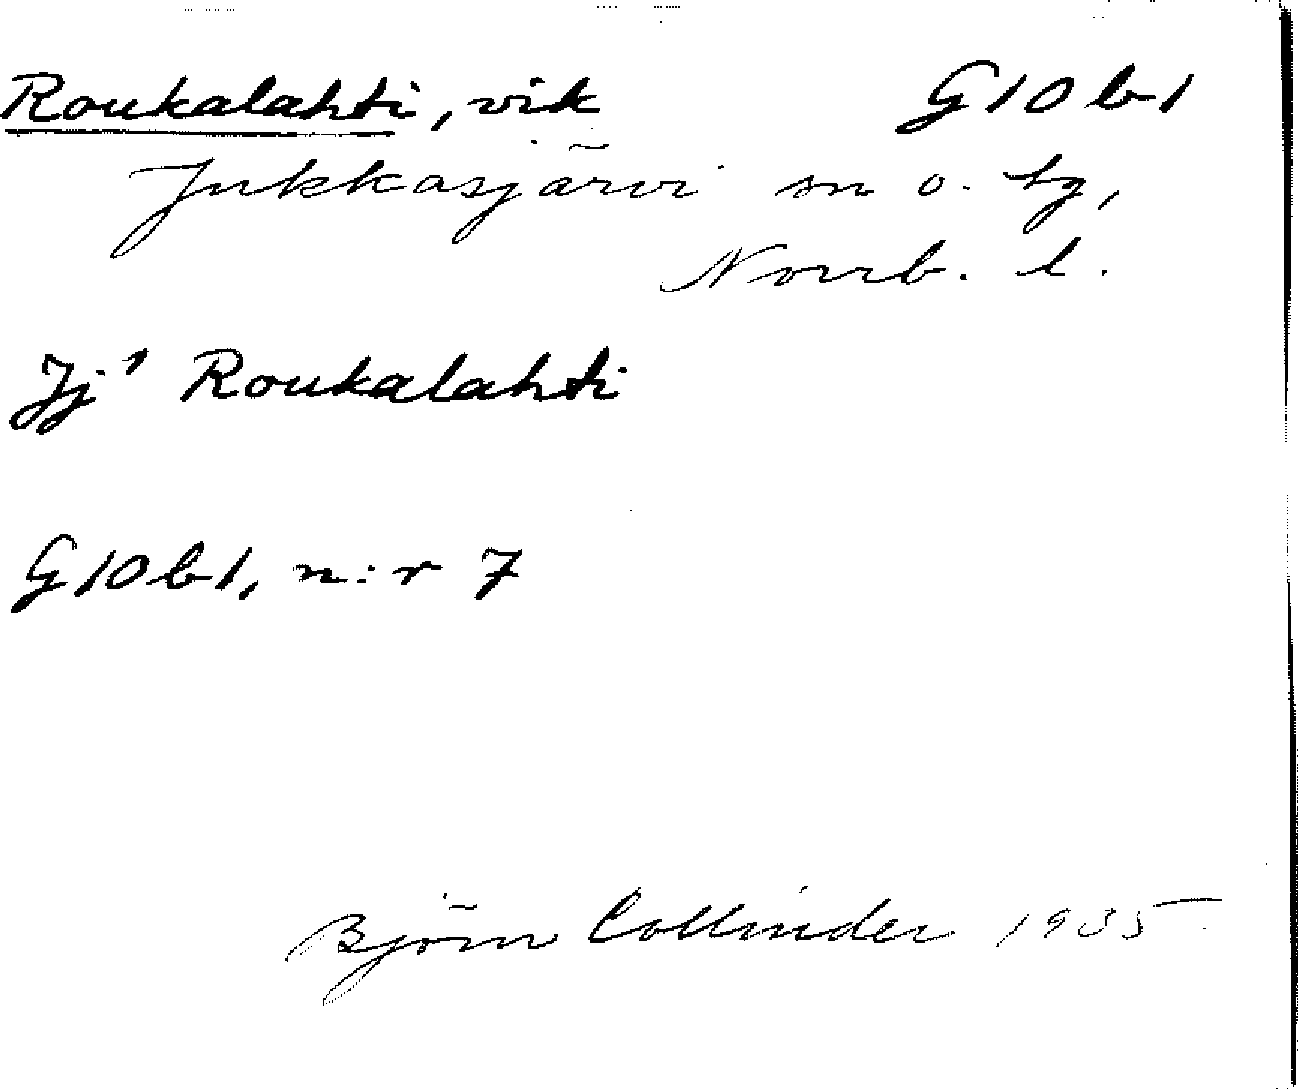 Roukalahti, vik G 10 b 1
Jukkasjärvi sn o. tg,
Norrb. l.
Jj¹ Roukalahti
G 10 b 1, n:r 7
Björn Collinder 1935